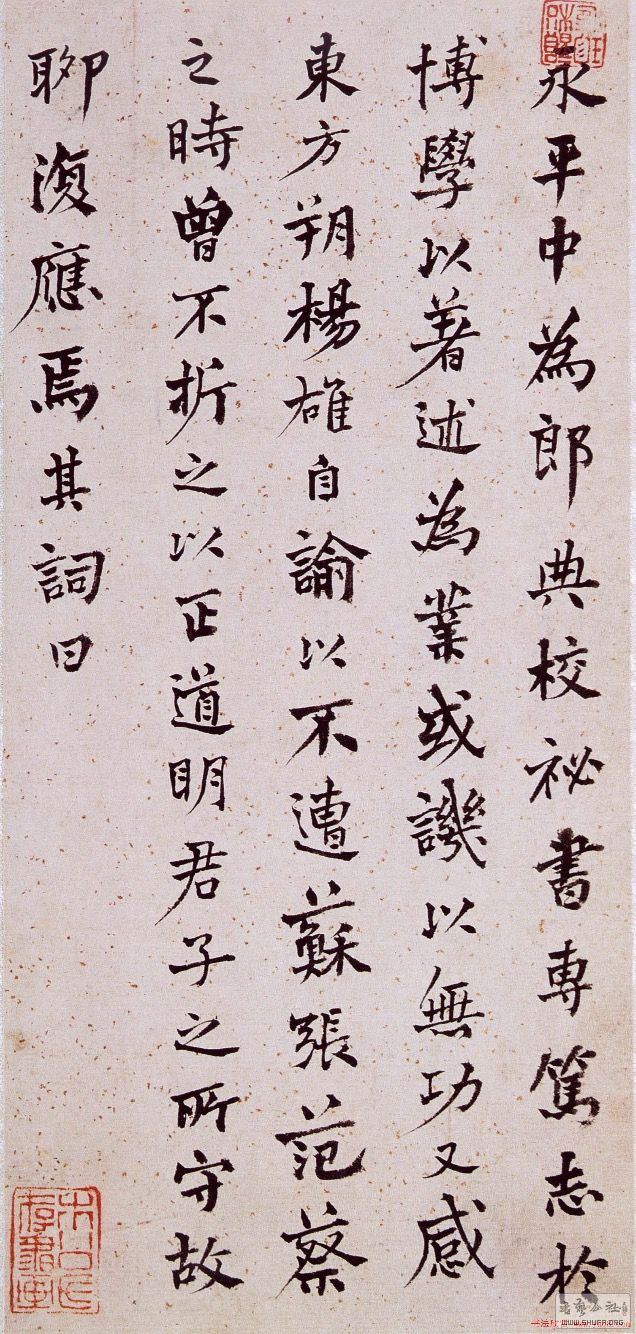 永平中為郎典校祕書專篤志於
博學以著述為業或譏以無功又感
東方朔楊雄自諭以不遭蘇張范蔡
之時曾不折之以正道明君子之所守故
聊復應焉其詞曰
WWW.SHUFA.ORG